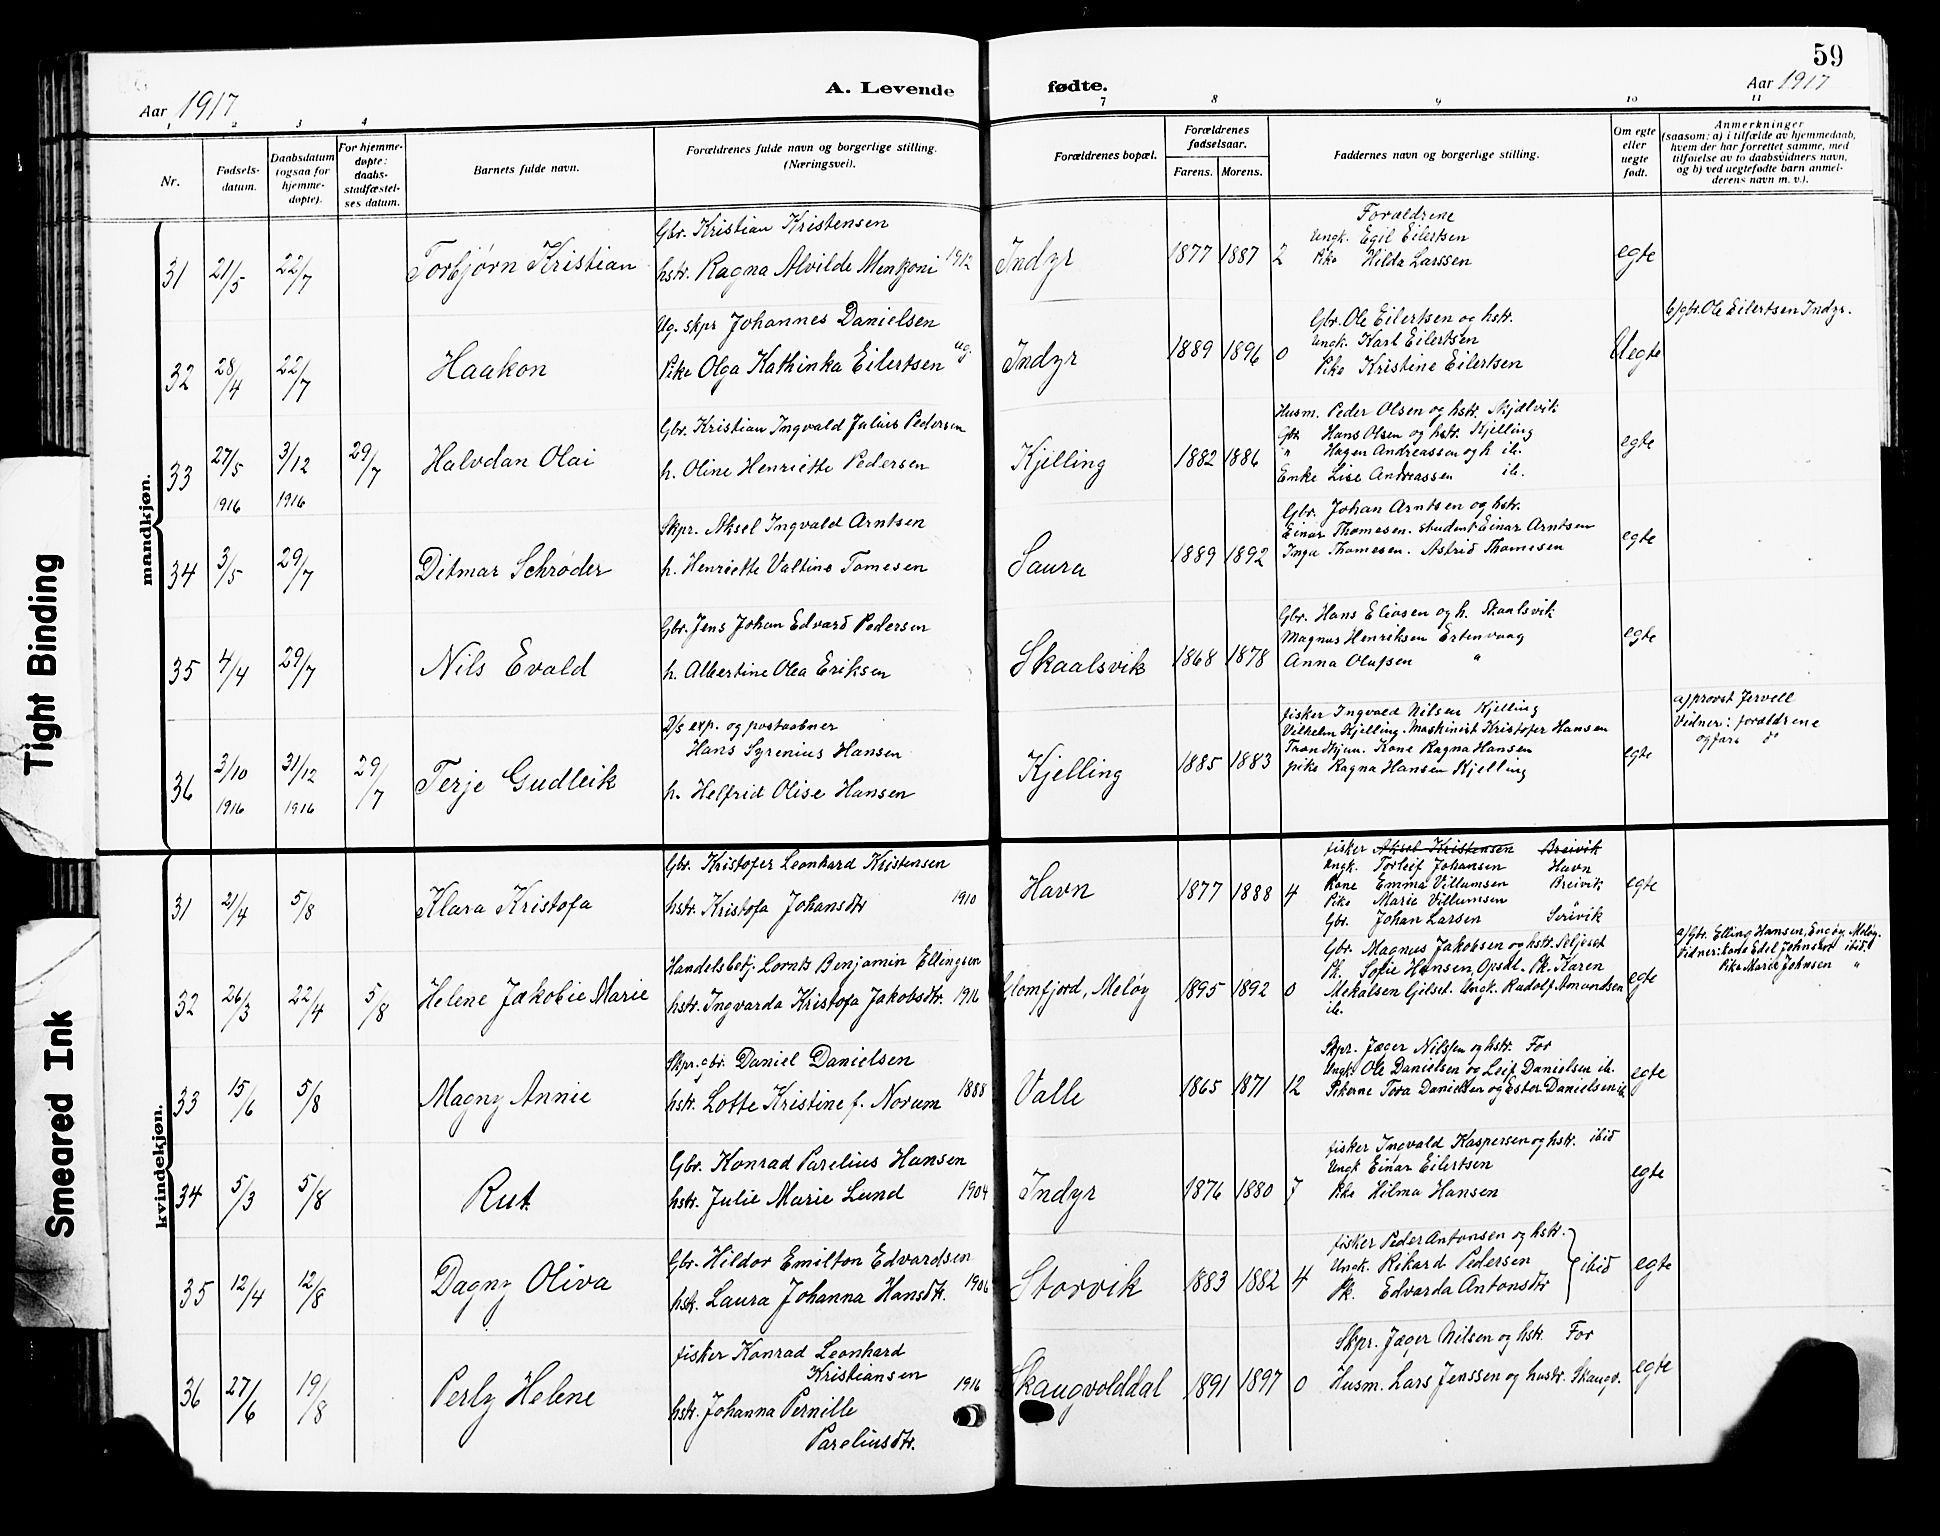 59
Aar 1917
A. Levende fødte.
Aar 1917
1 2 3 4 7 8 9 10 11
Nr.
Fødsels-
datum.
Daabsdatum
(ogsaa for
hjemme-
døpte).
For hjemme-
døpte:
daabs-
stadfæstel-
ses datum.
Barnets fulde navn.
Forældrenes fulde navn og borgerlige stilling.
(Næringsvei).
Forældrenes bopæl.
Forældrenes
fødselsaar.
Farens. Morens.
Faddernes navn og borgerlige stilling.
Om egte
eller
uegte
født.
Anmerkninger
(saasom: a) i tilfælde av hjemmedaab,
hvem der har forrettet samme, med
tilføielse av to daabsvidners navn,
og b) ved uegtefødte barn anmel-
derens navn m. v.).
mandkjøn.
31 21/5 22/7 Torbjørn Kristian
Gbr. Kristian Kristensen
hstr. Ragna Alvilde Menkzoni 1912
Indyr 1877 1887 2
Forældrene
Ungk. Egil Eilertsen
Pike Hilda Larssen
egte
32 28/4 22/7 Haakon
Ug. skpr Johannes Danielsen
Pike Olga Kathinka Eilertsen ug.
Indyr 1889 1896 0
Gbr. Ole Eilertsen og hstr.
Ungk. Karl Eilertsen
Pike Kristine Eilertsen
Uegte
b/gbr. Ole Eilertsen Indyr.
33 27/5 1916 3/12 1916 29/7 Halvdan Olai
Gbr. Kristian Ingvald Julius Pedersen
h. Oline Henriette Pedersen
Kjelling 1882 1886
Husm. Peder Olsen og hstr.
Gbr. Hans Olsen og hstr. Kjelling
" Hagen Andreassen og h ib.
Enke Lise Andreassen ib.
egte
34 3/5 29/7 Ditmar Schrøder
Skpr. Aksel Ingvald Arntsen
h. Henriette Valtine Tomesen
Saura 1889 1892
Gbr. Johan Arntsen og hstr.
Einar Thomesen. student Einar Arntsen
Inga Thomesen. Astrid Thomesen
egte
35 4/4 29/7 Nils Evald
Gbr. Jens Johan Edvard Pedersen
h. Albertine Olea Eriksen
Skaalsvik 1868 1878
Gbr. Hans Eliasen og h. Skaalsvik
Magnus Henriksen Estenvaag
Anna Olufsen "
egte
36 3/10 1916 31/12 1916 29/7 Terje Gudleik
D/s exp. og postaabner
Hans Syrenius Hansen
h. Helfrid Olise Hansen
Kjelling 1885 1883
fisker Ingvald Nilsen Kjelling
Vilhelm Kjelling. Maskinist Kristofer Hansen
Trondhjem. Kone Ragna Hansen
pike Ragna Hansen Kjelling
egte
a/provst Jervell
Vidner: forældrene
kvindekjøn.
31 21/4 5/8 Klara Kristofa
Gbr. Kristofer Leonhard Kristensen
hstr. Kristofa Johansdtr 1910
Havn 1877 1888 4
fisker Aksel Kristensen Breivik
Ungk. Torleif Johansen Havn
Kone Emma Villumsen Breivik
Pike Marie Villumsen
Gbr. Johan Larsen Sørvik
egte
32 26/3 22/4 5/8 Helene Jakobie Marie
Handelsbetj. Lornts Benjamin Ellingsen
hstr. Ingvarda Kristofa Jakobsdtr. 1916
Glomfjord, Meløy 1895 1892 0
Gbr. Magnus Jakobsen og hstr. Seljeset
Pk. Sofie Hansen, Opsal. Pk. Karen
Mekalsen Gilset. Ungk. Rudolf Amundsen
ib.
egte
a/Gbr. Elling Hansen, Enge, Meløy.
Vidner: kone Edel Johnsen ibid
Pike Marie Johnsen "
33 15/6 5/8 Magny Annie
Skpr. gbr. Daniel Danielsen
hstr. Lotte Kristine f. Norum 1888
Valle 1865 1871 12
Skpr. Jæger Nilssen og hstr. For
Ungk. Ole Danielsen og Leif Danielsen ib.
Pikerne Tora Danielsen og Ester Danielsen ib.
egte
34 5/3 5/8 Rut
Gbr. Konrad Parelius Hansen
hstr. Julie Marie Lund 1904
Indyr 1876 1880 7
fisker Ingvald Kaspersen og hstr. ibid
Ungk Einar Eilertsen
Pike Hilma Hansen
egte
35 12/4 12/8 Dagny Oliva
Gbr. Hildor Emilton Edvardsen
hstr. Laura Johanna Hansdtr. 1906
Storvik 1883 1882 4
fisker Peder Antonsen og hstr.
Ungk. Rikard Pedersen
Pk. Edvarda Antonsdtr
ibid
egte
36 27/6 19/8 Perly Helene
fisker Konrad Leonhard
Kristiansen
hstr. Johanna Pernille
Pareliusdtr. 1916
Skaugvolddal 1891 1897 0
Skpr. Jæger Nilsen og hstr. For
Husm. Lars Jenssen og hustr. Skaugv.
egte
Tight Binding
Smeared Ink